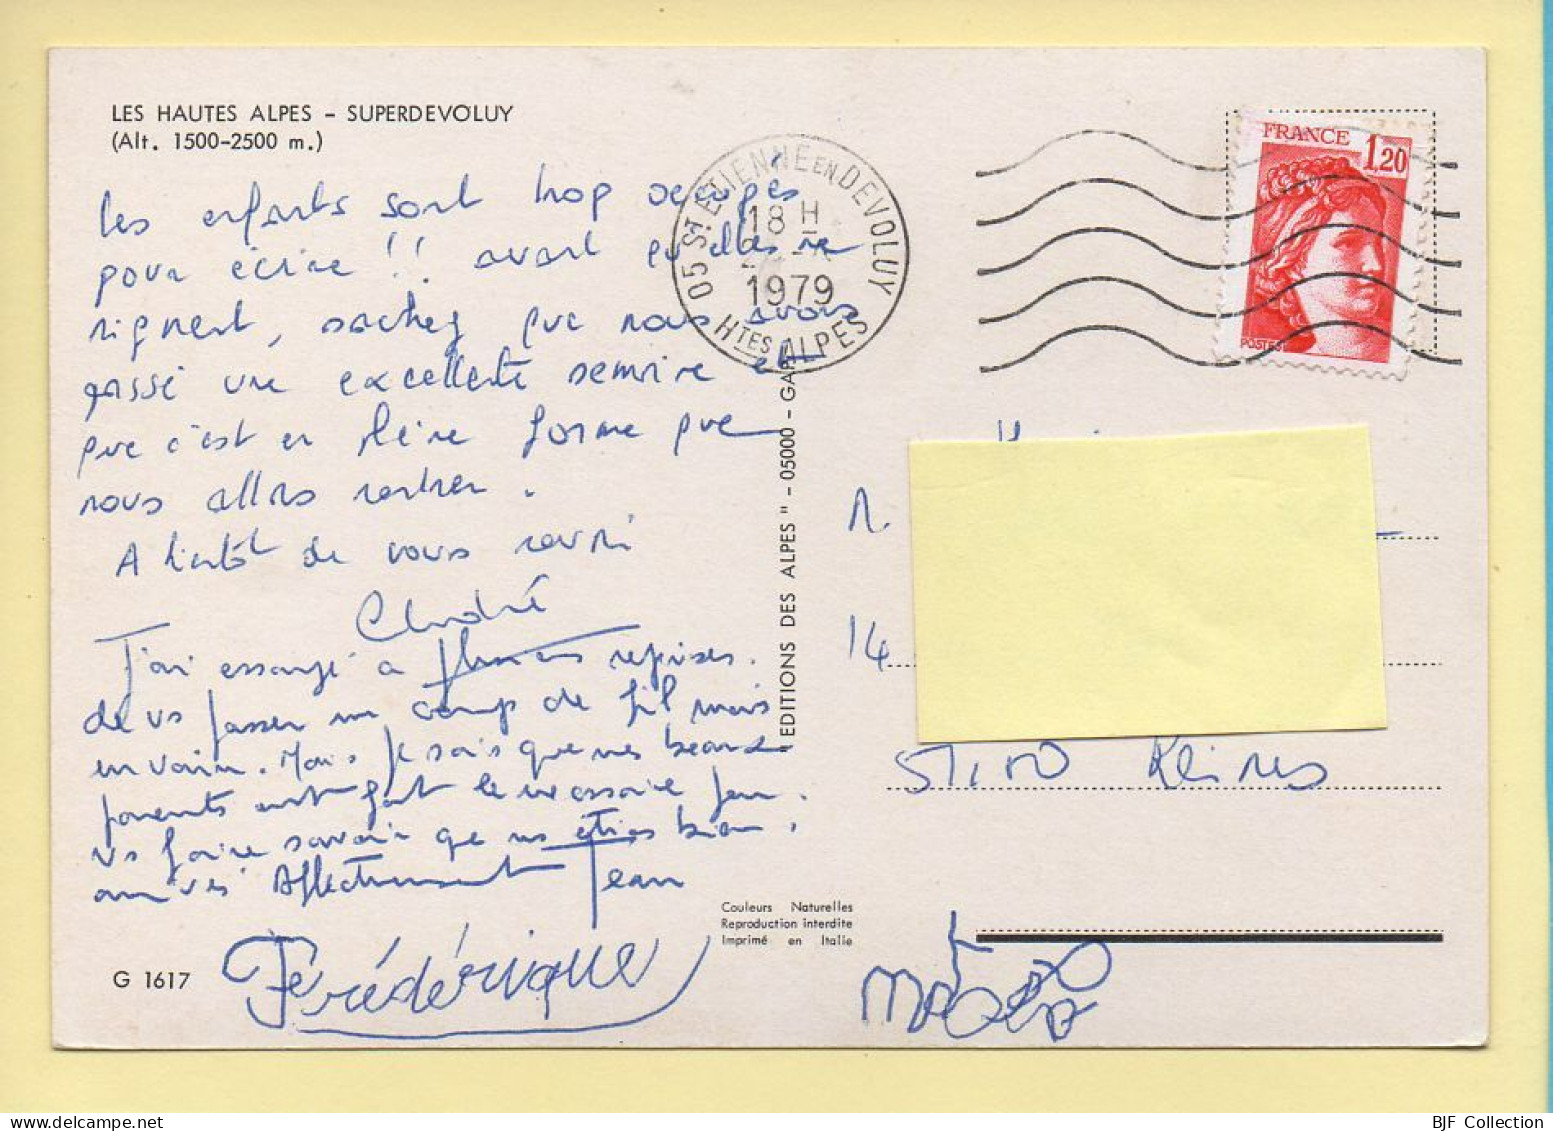 LES HAUTES ALPES – SUPERDEVOLUY
(Alt. 1500-2500 m.)
Les enfants sont trop occupés
pour écrire !! avant qu'elles ne
signent, sachez que nous avons
passé une excellente semaine et
que c'est en pleine forme que
nous allons rentrer.
A bientôt de vous revoir
André
J'ai essayé à plusieurs reprises
de vs passer un coup de fil mais
en vain. Mais je sais que mes beaux
parents ont fait le nécessaire pour
vs faire savoir que ns étions bien
arrivés Affectueusement Jean
Frédérique
G 1617
05 ST ETIENNE EN DEVOLUY
18 H
1979
HTES ALPES
FRANCE 1,20
POSTES
EDITIONS DES ALPES" - 05000 - GAP
14
51100 Reims
Couleurs Naturelles
Reproduction interdite
Imprimé en Italie
BJF Collection